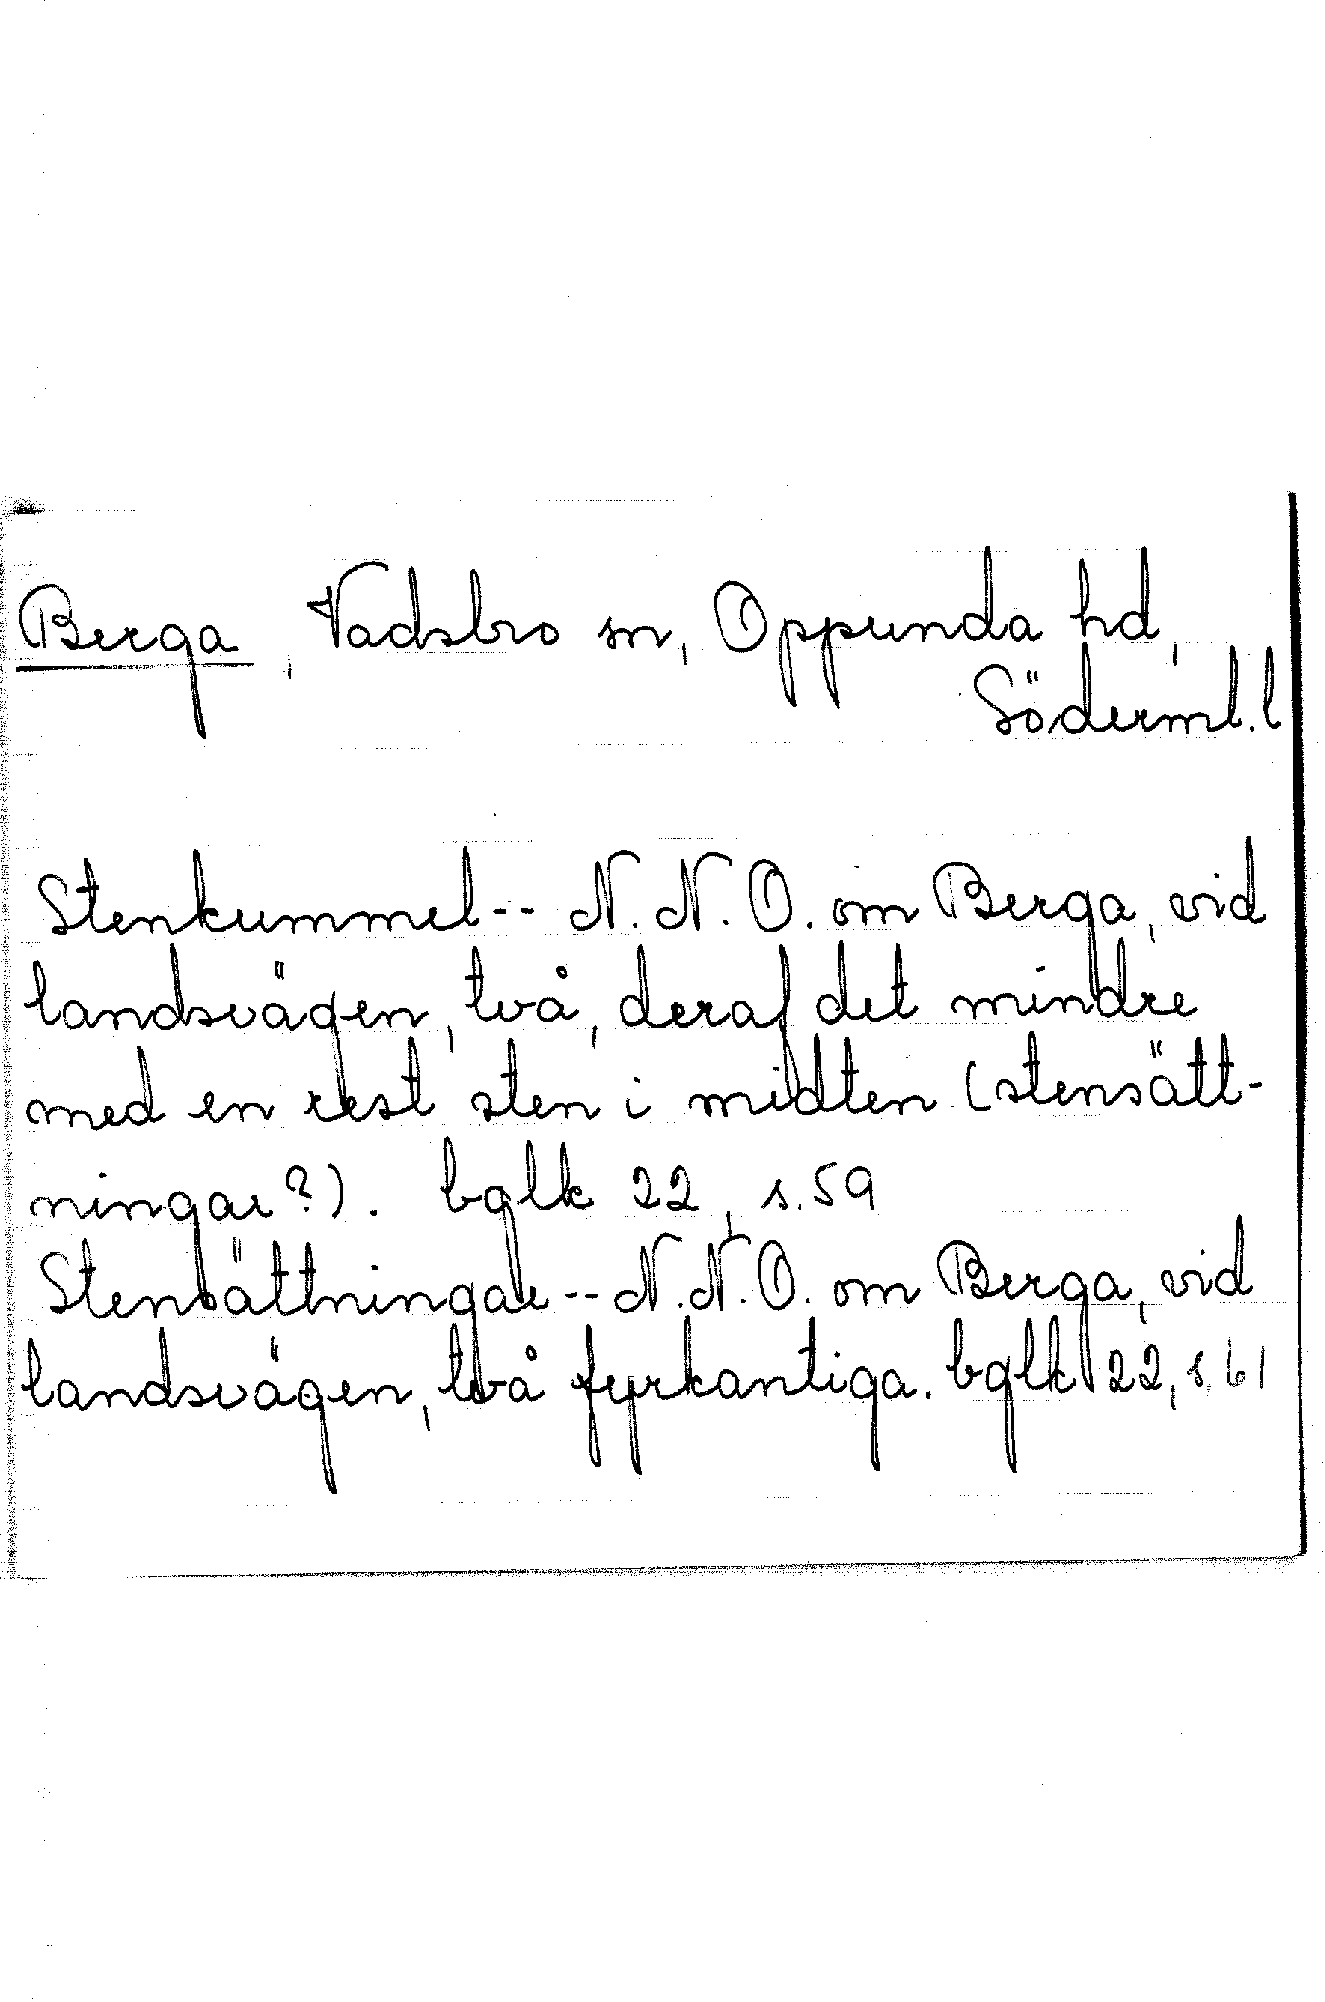 Berga, Vadsbro sn, Oppunda hd,
Söderml. l
Stenkummel -- N.N.O. om Berga, vid
landsvägen, två, deraf det mindre
med en rest sten i midten (stensätt-
ningar?). bglk 22, s. 59
Stensättningar -- N.N.O. om Berga, vid
landsvägen, två fyrkantiga. bglk 22, s. 61